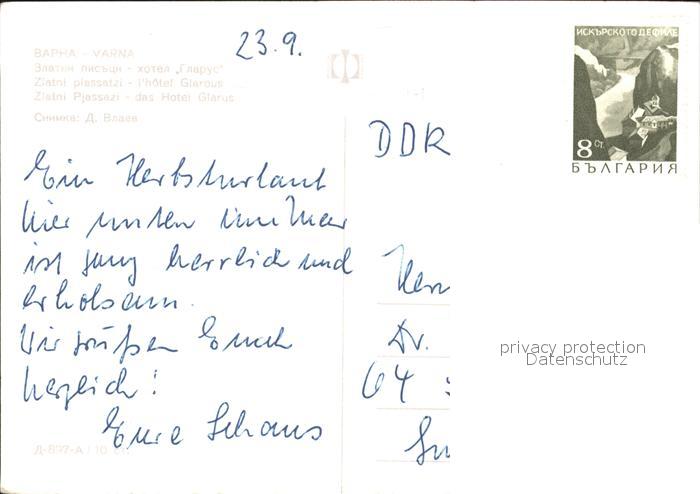 23.9.
ВАРНА - VARNA
Златни пясъци - хотел „Гларус"
Zlatni piassatzi - l'hôtel Glarous
Zlatni Pjassazi - das Hotel Glarus
Снимка: Д. Влаев
Ein Herbsturlaub
hier unten im Meer
ist ganz herrlich und
erholsam.
Wir grüßen Euch
herzlich!
Eure
Д-897-А / 10
ИСКЪРСКОТО ДЕФИЛЕ
8 СТ.
БЪЛГАРИЯ
DDR
Herrn
Dr.
64
privacy protection
Datenschutz